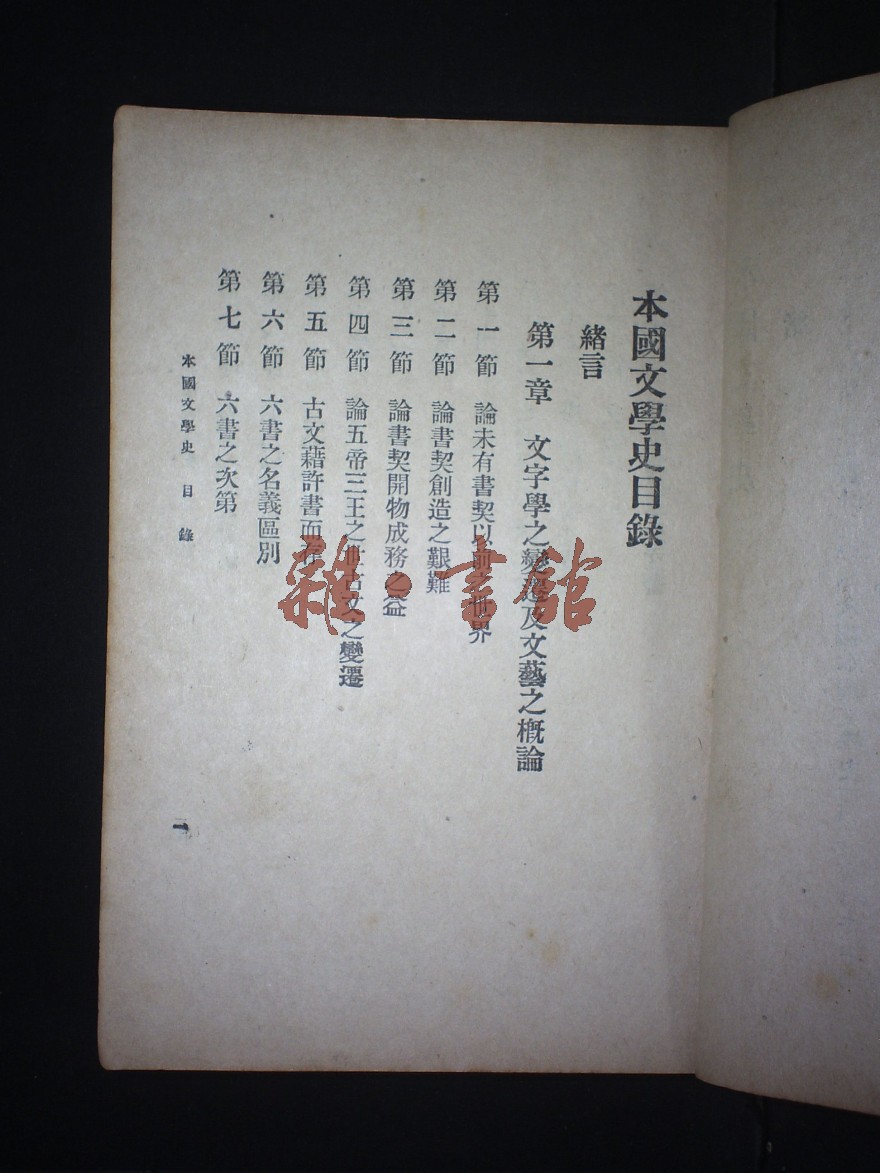 本國文學史目錄
緒言
第一章 文字學之變遷及文藝之概論
第一節 論未有書契以前之世界
第二節 論書契創造之艱難
第三節 論書契開物成務之益
第四節 論五帝三王之世古文之變遷
第五節 古文藉許書而存
第六節 六書之名義區別
第七節 六書之次第
本國文學史 目錄
一
雜·書館